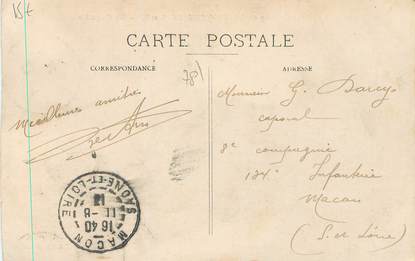 15t
CARTE POSTALE
CORRESPONDANCE
ADRESSE
Meilleures amitiés
Monsieur G. Darcy
caporal
8e compagnie
134e Infanterie
Macon
(S. et Loire)
MACON
16 40
11-8
SAONE-ET-LOIRE